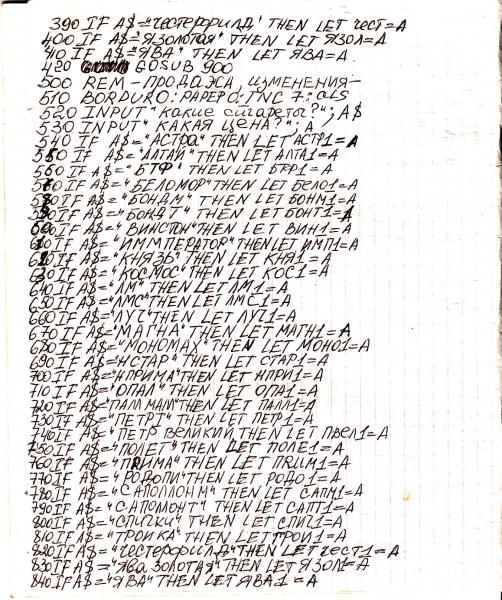 390 IF A$="честерфорилд" THEN LET чест=A
400 IF A$="ЯЗОЛОТАЯ" THEN LET ЯЗОЛ=A
410 IF A$="ЯВА" THEN LET ЯВА=A
420 GOSUB 900
500 REM-ПРОДАЖА, ИЗМЕНЕНИЯ-
510 BORDUR0: PAPER 0: INC 7: CLS
520 INPUT "какие сигареты?"; A$
530 INPUT "КАКАЯ ЦЕНА?"; A
540 IF A$="АСТРА" THEN LET АСТР1=A
550 IF A$="АЛТАЙ" THEN LET АЛТА1=A
560 IF A$="БТФ" THEN LET БТФ1=A
570 IF A$="БЕЛОМОР" THEN LET БЕЛО1=A
580 IF A$="БОНДМ" THEN LET БОНМ1=A
590 IF A$="БОНДТ" THEN LET БОНТ1=A
600 IF A$="ВИНСТОН" THEN LET ВИН1=A
610 IF A$="ИММПЕРАТОР" THEN LET ИМП1=A
620 IF A$="КНЯЗЬ" THEN LET КНЯ1=A
630 IF A$="КОСМОС" THEN LET КОС1=A
640 IF A$="ЛМ" THEN LET ЛМ1=A
650 IF A$="ЛМС" THEN LET ЛМС1=A
660 IF A$="ЛУЧ" THEN LET ЛУЧ1=A
670 IF A$="МАГНА" THEN LET МАГН1=A
680 IF A$="МОНОМАХ" THEN LET МОНО1=A
690 IF A$="НСТАР" THEN LET СТАР1=A
700 IF A$="НПРИМА" THEN LET НПРИ1=A
710 IF A$="ОПАЛ" THEN LET ОПА1=A
720 IF A$="ПАЛМАМ" THEN LET ПАЛМ1=A
730 IF A$="ПЕТРТ" THEN LET ПЕТР1=A
740 IF A$="ПЕТР ВЕЛИКИЙ" THEN LET ПВЕЛ1=A
750 IF A$="ПОЛЕТ" THEN LET ПОЛЕ1=A
760 IF A$="ПRИМА" THEN LET ПRИМ1=A
770 IF A$="РОДОПИ" THEN LET РОДО1=A
780 IF A$="САПОЛЛОНМ" THEN LET САПМ1=A
790 IF A$="САПОМОНТ" THEN LET САПТ1=A
800 IF A$="СПИЧКИ" THEN LET СПИЧ1=A
810 IF A$="ТРОИКА" THEN LET ТРОИ1=A
820 IF A$="честерфорилд" THEN LET чест1=A
830 IF A$="Ява золотая" THEN LET ЯЗОЛ1=A
840 IF A$="ЯВА" THEN LET ЯВА1=A